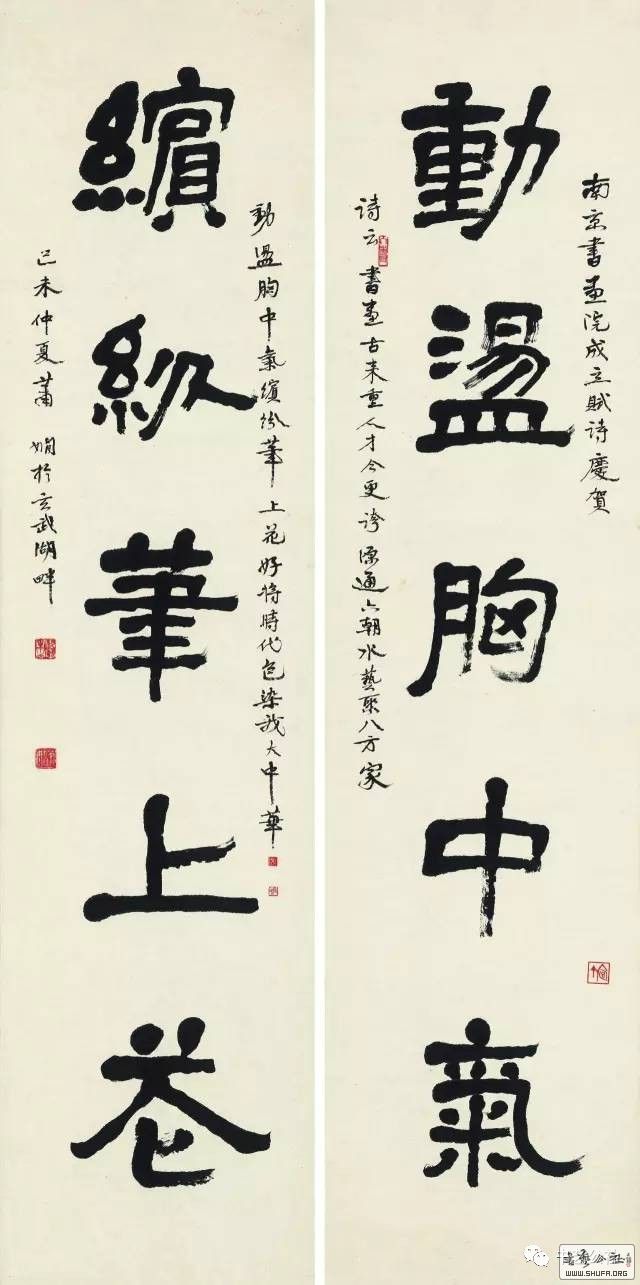 南京書畫院成立賦詩慶賀
動盪胸中氣
詩云書畫古来重人才今更誇源通六朝水藝聚八方家
動盪胸中氣繽紛筆上花好將時代色染我大中華
繽紛筆上花
己未仲夏蕭嫻於玄武湖畔
WWW.SHUFA.ORG